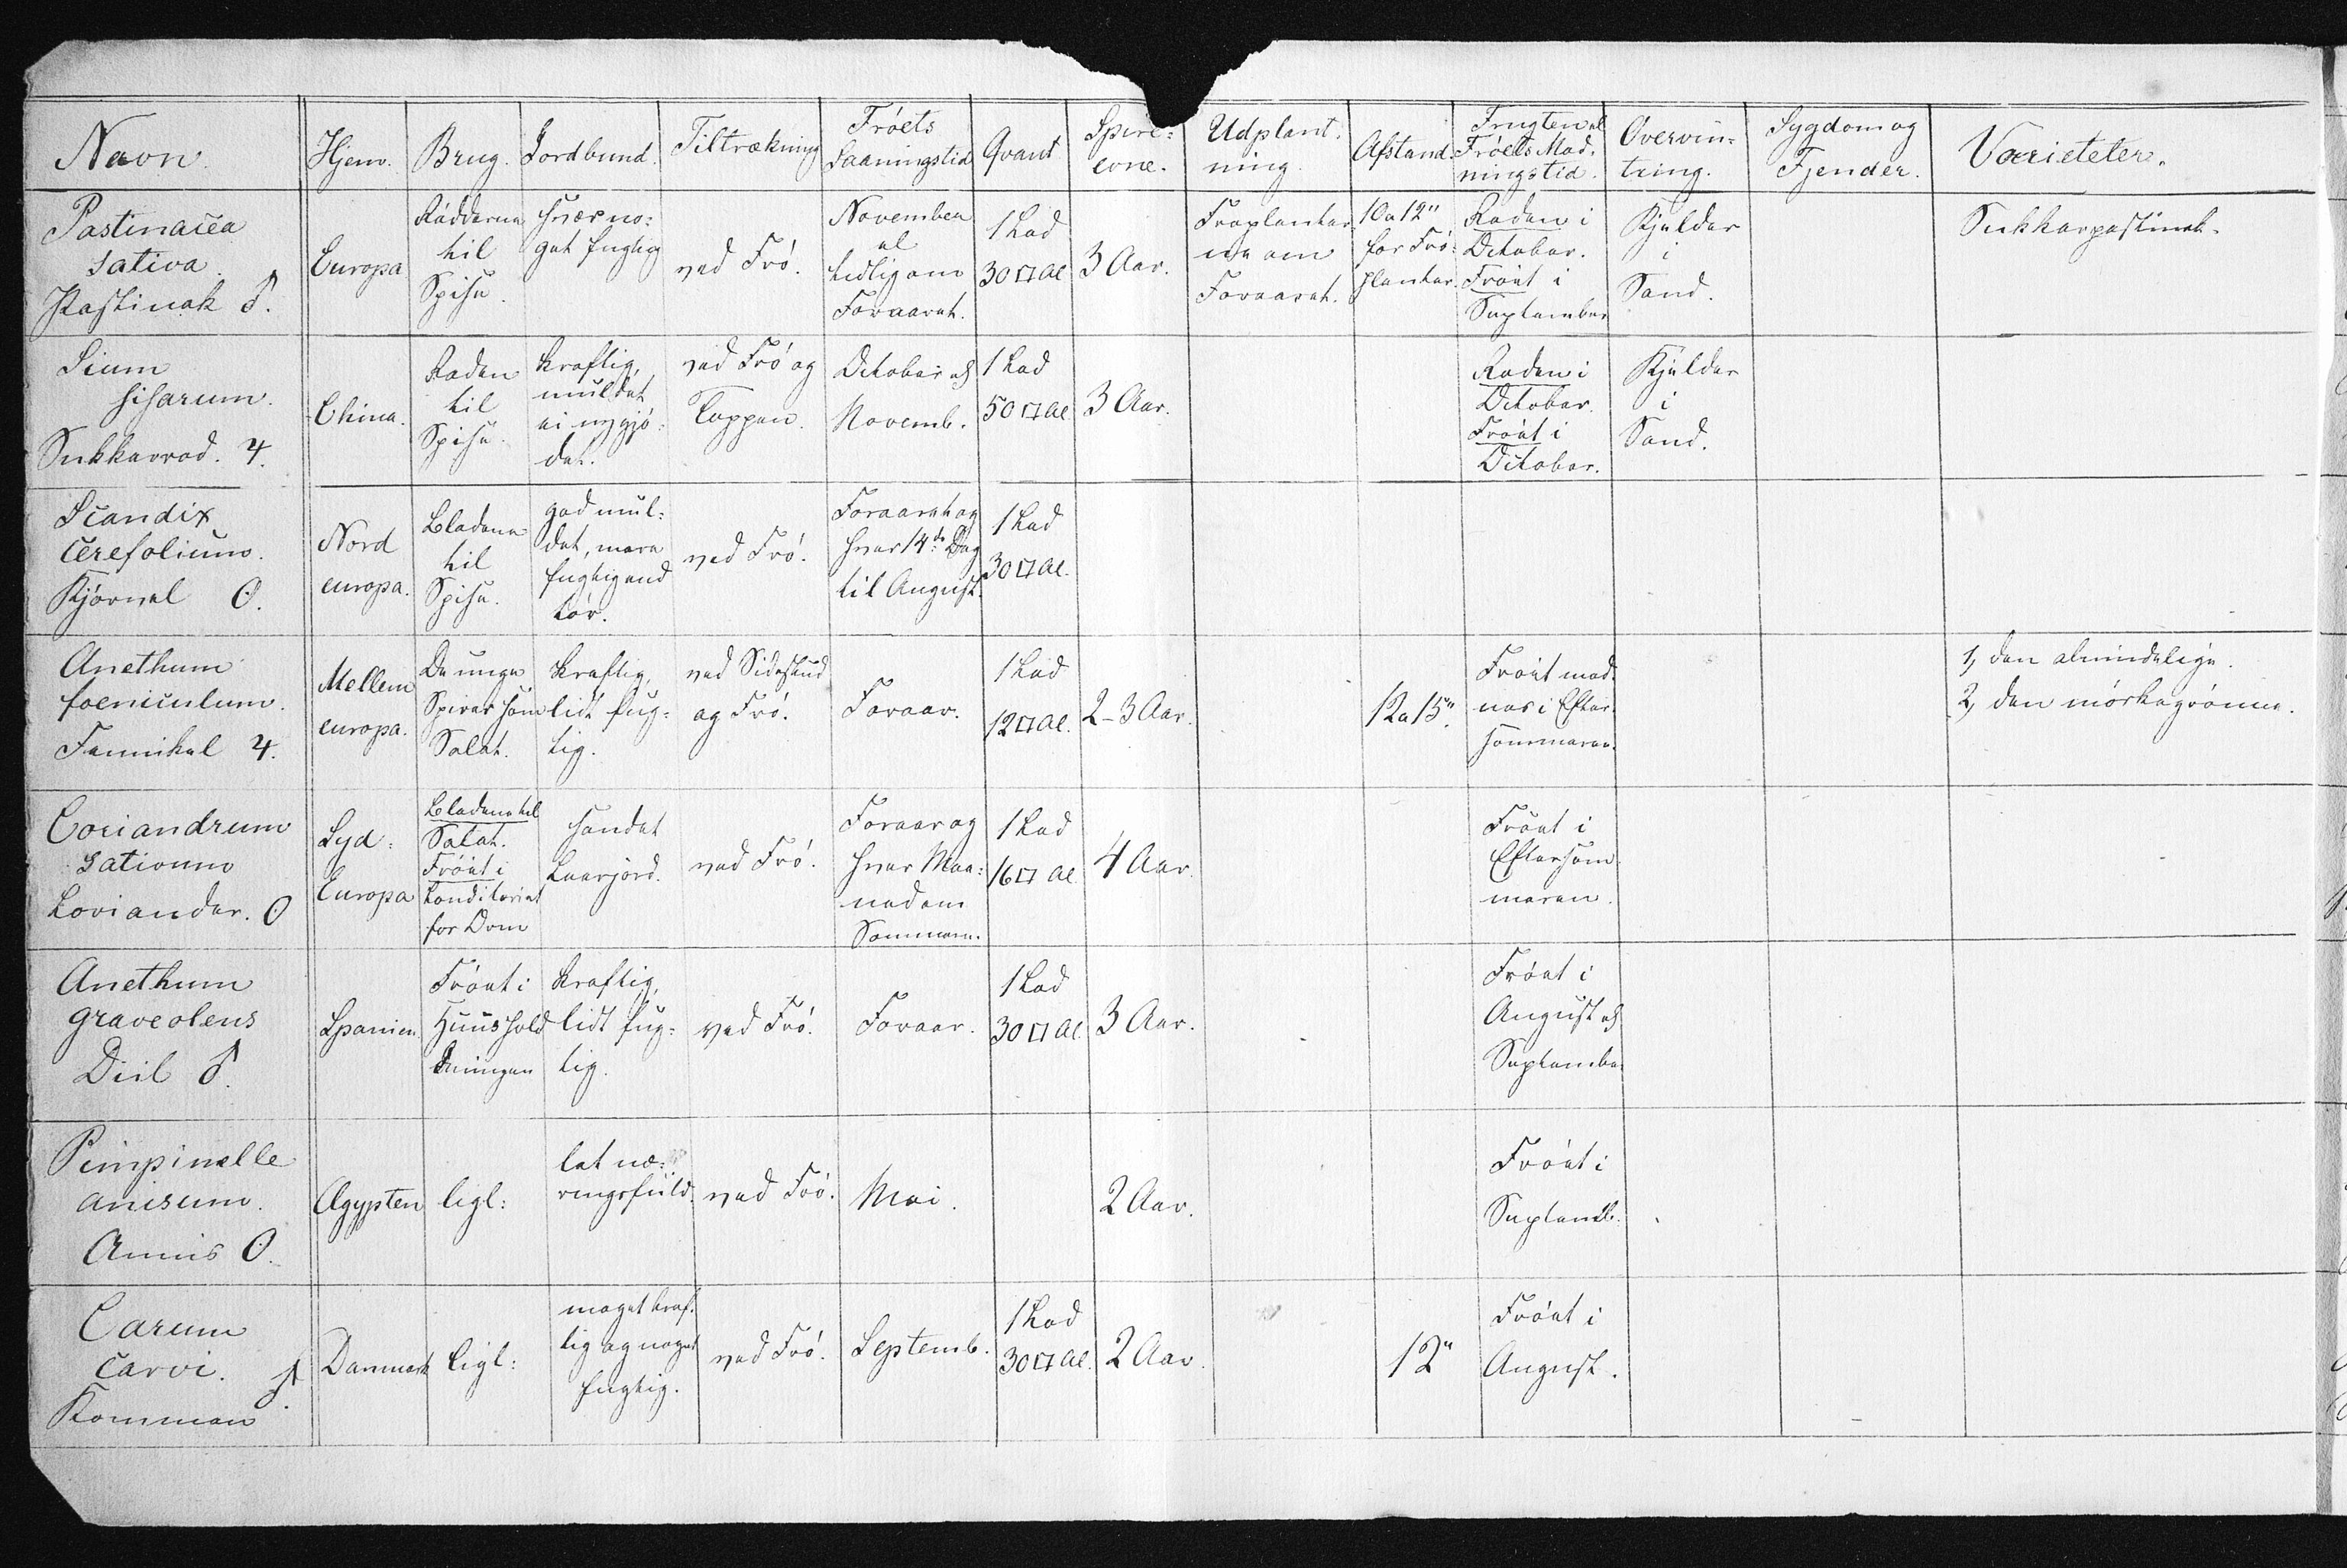 Navn.
Hjem.
Brug.
Jordbund.
Tiltrækning
Fróets
Saaningstid
Qvant
Spire=
evne.
Udplant.
ning.
Afstand.
Frugten el
Fróets Mod.
ningstid.
Overvin=
tring.
Sygdom og
Fjender.
Varieteter.
Pastinacea
sativa.
Pastinak ♂.
Europa
Rödderne
til
Spise.
svær no:
get fugtig
ved Fró.
November
el
tidlig om
Foraaret.
1 Lod
30 □ Al
3 Aar.
Fröplanter
ne om
Foraaret.
10 a 12"
for Fró:
planter.
Roden i
October.
Fröet i
September
Kjelder
i
Sand.
Sukkerpastinak.
Sium
sisarum.
Sukkerrod. ♃.
China.
Roden
til
Spise.
kraftig,
muldet
ei nygjö:
det.
ved Fró og
Toppen.
October og
Novemb.
1 Lod
50 □ Al.
3 Aar.
Roden i
October.
Fröet i
October.
Kjelder
i
Sand.
Scandix
cerefolium.
Kjörvel O.
Nord
europa.
Bladene
til
Spise.
god mul:
det, mere
fugtig end
tör.
ved Fró.
Foraaret og
hver 14de Dag
til August.
1 Lod
30 □ Al.
Anethum
foeniculum.
Fennikel ♃.
Mellem
europa.
De unge
Spirer som
Salat.
kraftig,
lidt fug=
tig.
ved Sideskud
og Fró.
Foraar.
1 Lod
12 □ Al.
2-3 Aar.
12 a 15".
Fröet mod:
nes i Efter:
sommeren.
1, den almindelige.
2, den mörkegrönne.
Coriandrum
sativum
Koriander. O
Syd:
Europa
Bladene til
Salat.
Fröet i
Konditoriet
for Drm
sandet
Leerjord.
ved Fró.
Foraar og
hver Maa:
ned om
Sommeren.
1 Lod
16 □ Al
4 Aar.
Fröet i
Eftersom
meren.
Anethum
graveolens
Diil ♂.
Spanien.
Fröet i
Huushold
ningen
kraftig,
lidt fug=
tig.
ved Fró.
Foraar.
1 Lod
30 □ Al.
3 Aar.
Fröet i
August og
September
Pimpinelle
anisum.
Annis O.
Ægypten
ligl:
let næ:
ringsfuld.
ved Fró.
Mai.
2 Aar.
Fröet i
Septemb.
Carum
carvi. ♂.
Kommen
Danmark
ligl:
meget kraf.
tig og noget
fugtig.
ved Fró.
Septemb.
1 Lod
30 □ Al.
2 Aar.
12"
Fröet i
August.